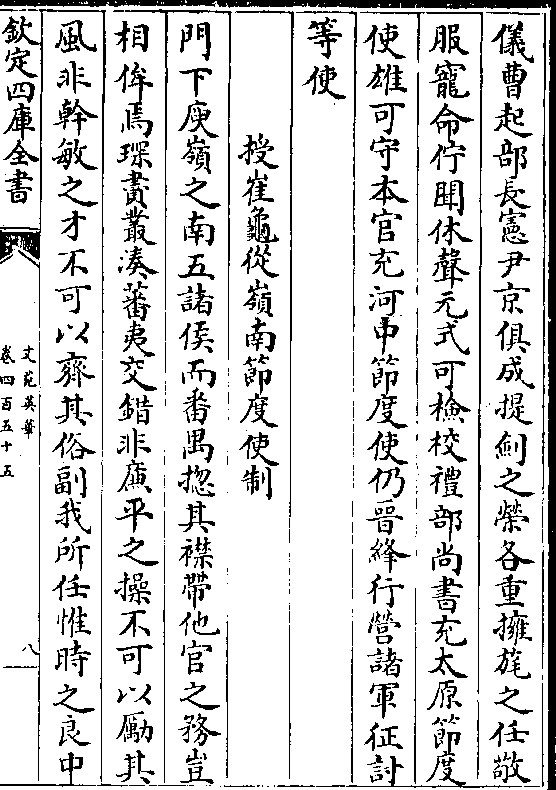 儀曹起部長憲尹京俱成提劍之榮各重擁旄之任敬
服寵命佇聞休聲元式可檢校禮部尚書充太原節度
使雄可守本官充河中節度使仍晉絳行營諸軍征討
等使
授崔龜從嶺南節度使制
門下庾嶺之南五諸侯而番禺揔其襟帶他官之務豈
相侔焉琛賮叢湊蕃夷交錯非廉平之操不可以勵其
風非幹敏之才不可以齊其俗副我所任惟時之良中
欽定四庫全書
文苑英華
卷四百五十五
八